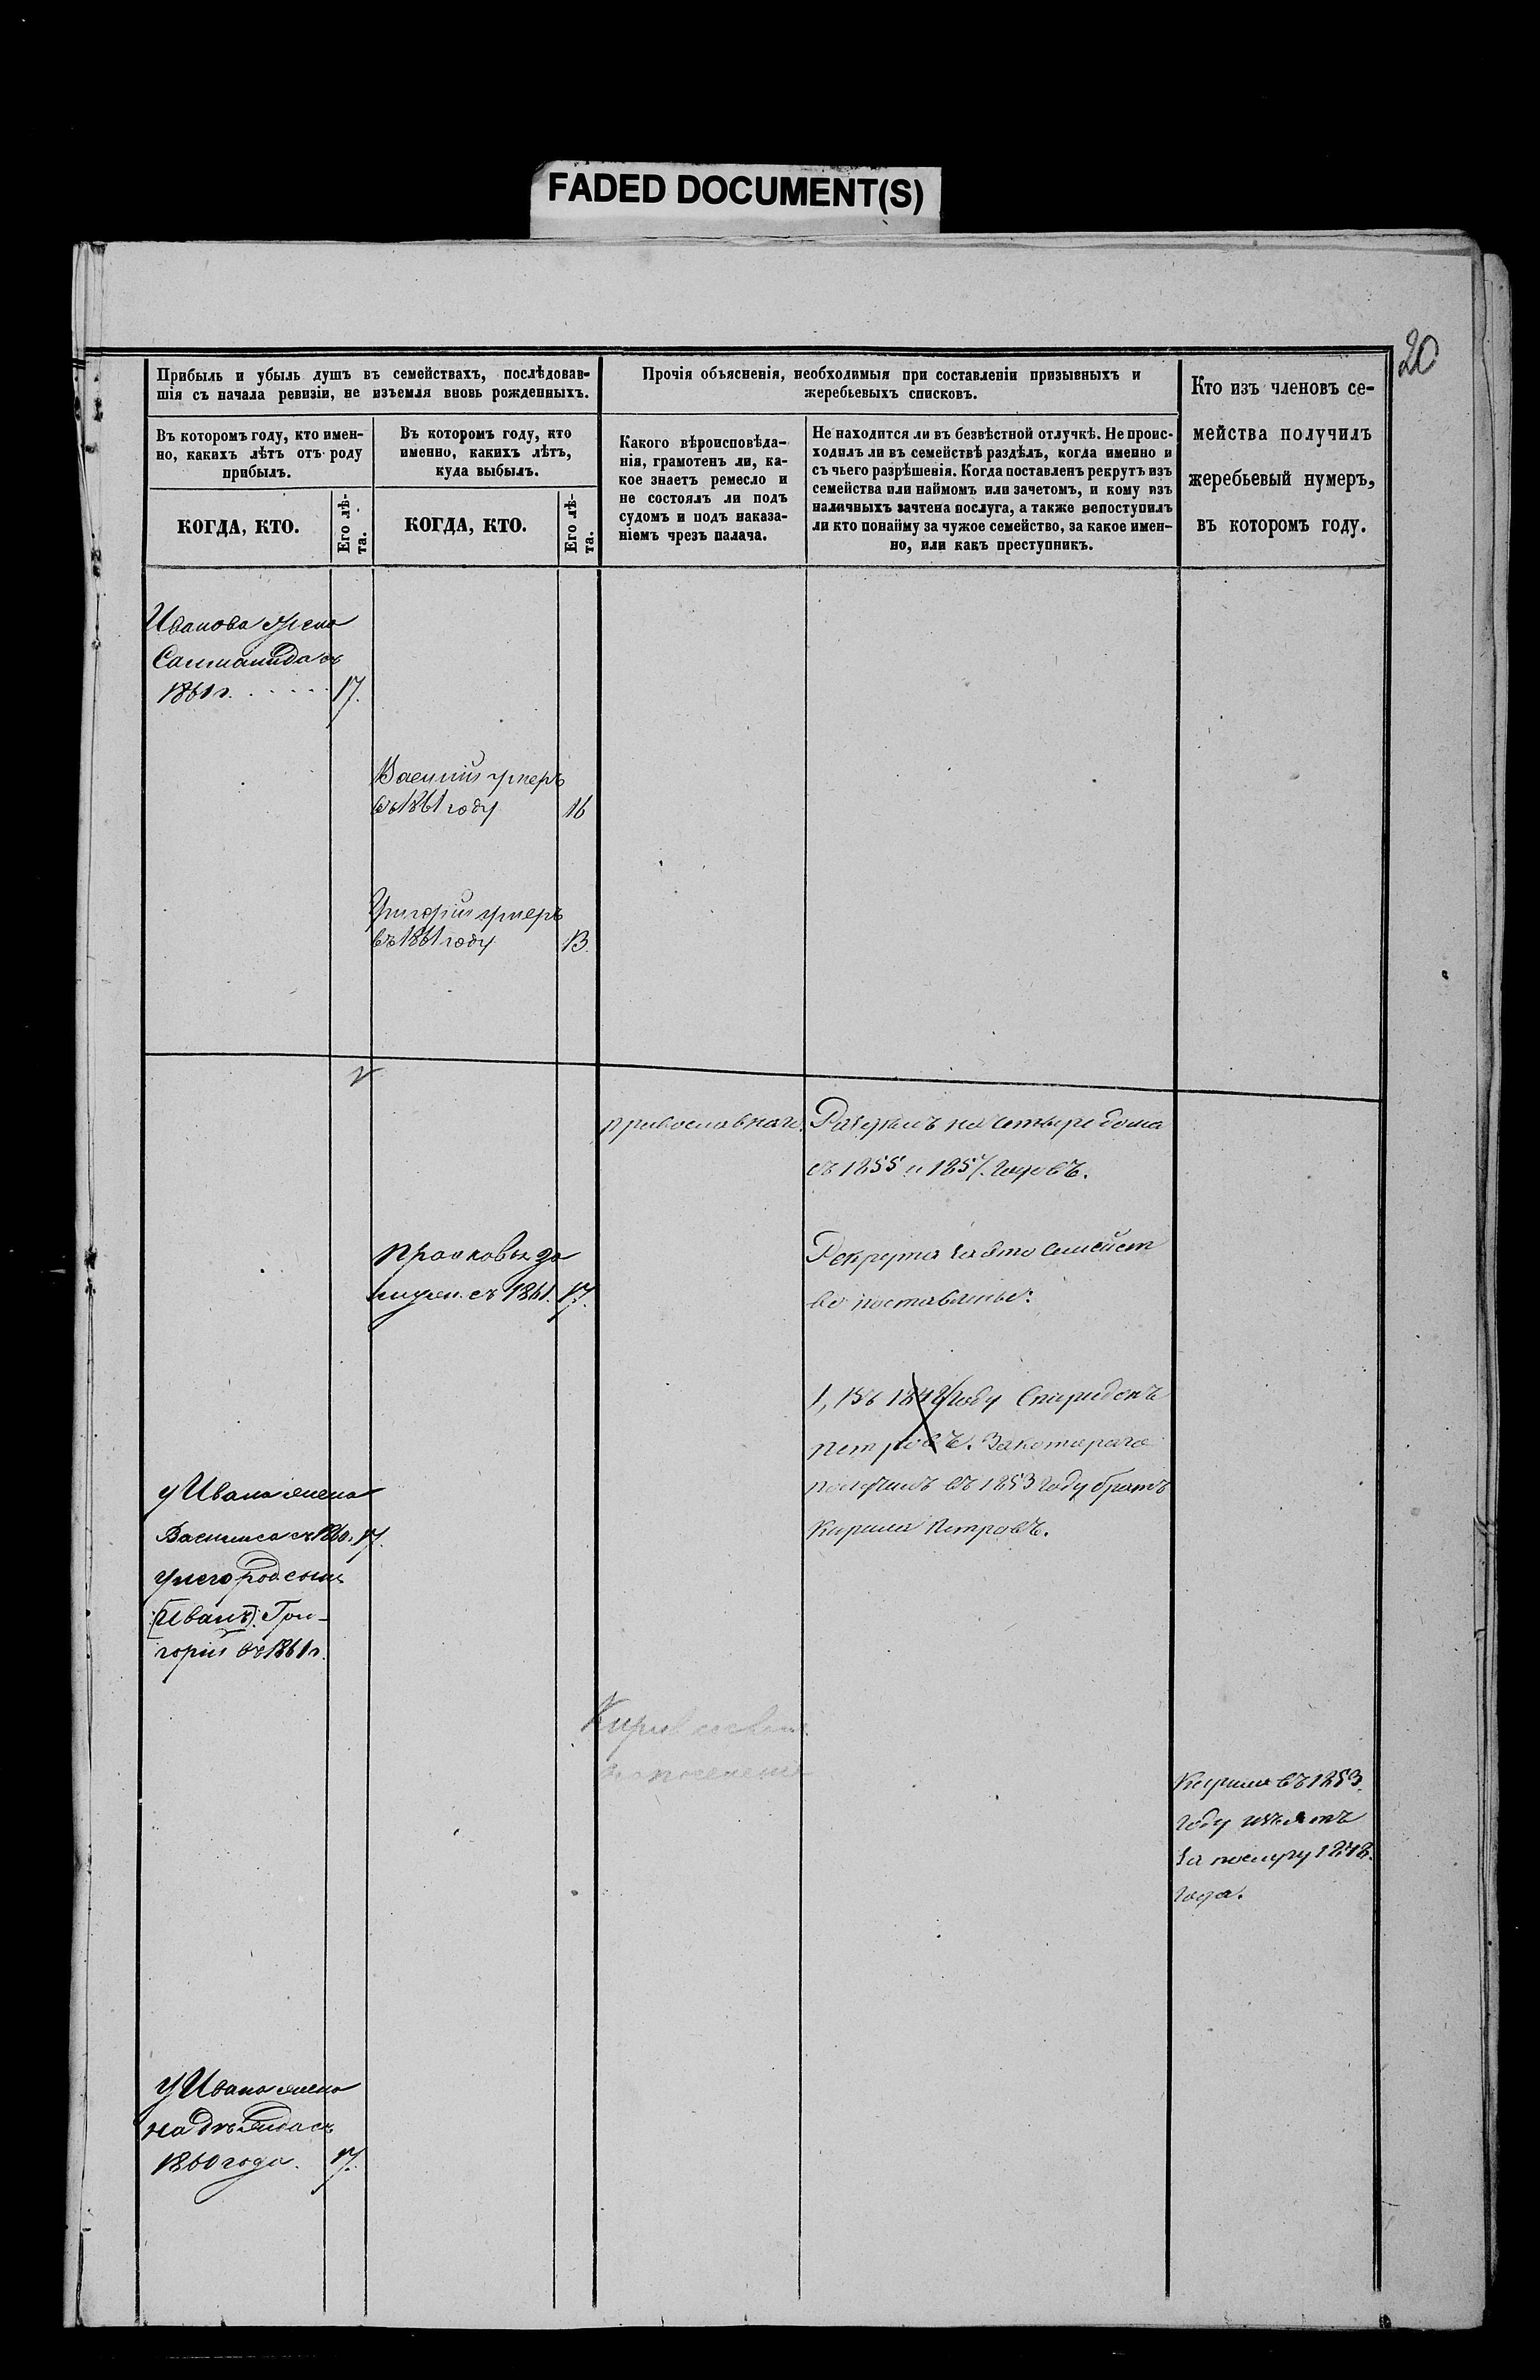 FADED DOCUMENT(S)
20
Прибыль и убыль душъ въ семействахъ, послѣдовав-
шія съ начала ревизіи, не изъемля вновь рожденныхъ.
Прочія объясненія, необходимыя при составленіи призывныхъ и
жеребьевыхъ списковъ.
Кто изъ членовъ се-
мейства получилъ
жеребьевый нумеръ,
въ которомъ году.
Въ которомъ году, кто имен-
но, какихъ лѣтъ отъ роду
прибылъ.
Въ которомъ году, кто
именно, какихъ лѣтъ,
куда выбылъ.
Какого вѣроисповѣда-
нія, грамотенъ ли, ка-
кое знаетъ ремесло и
не состоялъ ли подъ
судомъ и подъ наказа-
ніемъ чрезъ палача.
Не находится ли въ безвѣстной отлучкѣ. Не проис-
ходилъ ли въ семействѣ раздѣлъ, когда именно и
съ чьего разрѣшенія. Когда поставленъ рекрутъ изъ
семейства или наймомъ или зачетомъ, и кому изъ
наличныхъ зачтена послуга, а также непоступилъ
ли кто понайму за чужое семейство, за какое имен-
но, или какъ преступникъ.
КОГДА, КТО.
Его лѣ-
та.
КОГДА, КТО.
Его лѣ-
та.
Иванова жена
Саломанида съ
1861 г. 17.
Василий умеръ
въ 1861 году 16
Григорий умеръ
въ 1861 году 13.
православнаго.
Разделъ на четыре дома
съ 1855 и 1857. годовъ.
Прасковья
съ 1861. 17.
Рекрута за это семейст
во поставлены:
1, Въ 1848 году Спиридонъ
Петровъ. За котораго
въ 1853 году братъ
Кирила Петровъ.
у Ивана жена
Василиса съ 1860. 17.
у него род. сынъ
(Иванъ). Гри-
горий въ 1861 г.
Кирила въ 1853.
году изъятъ
за послугу 1848.
года.
у Ивана жена
надѣжда съ
1860 года. 17.